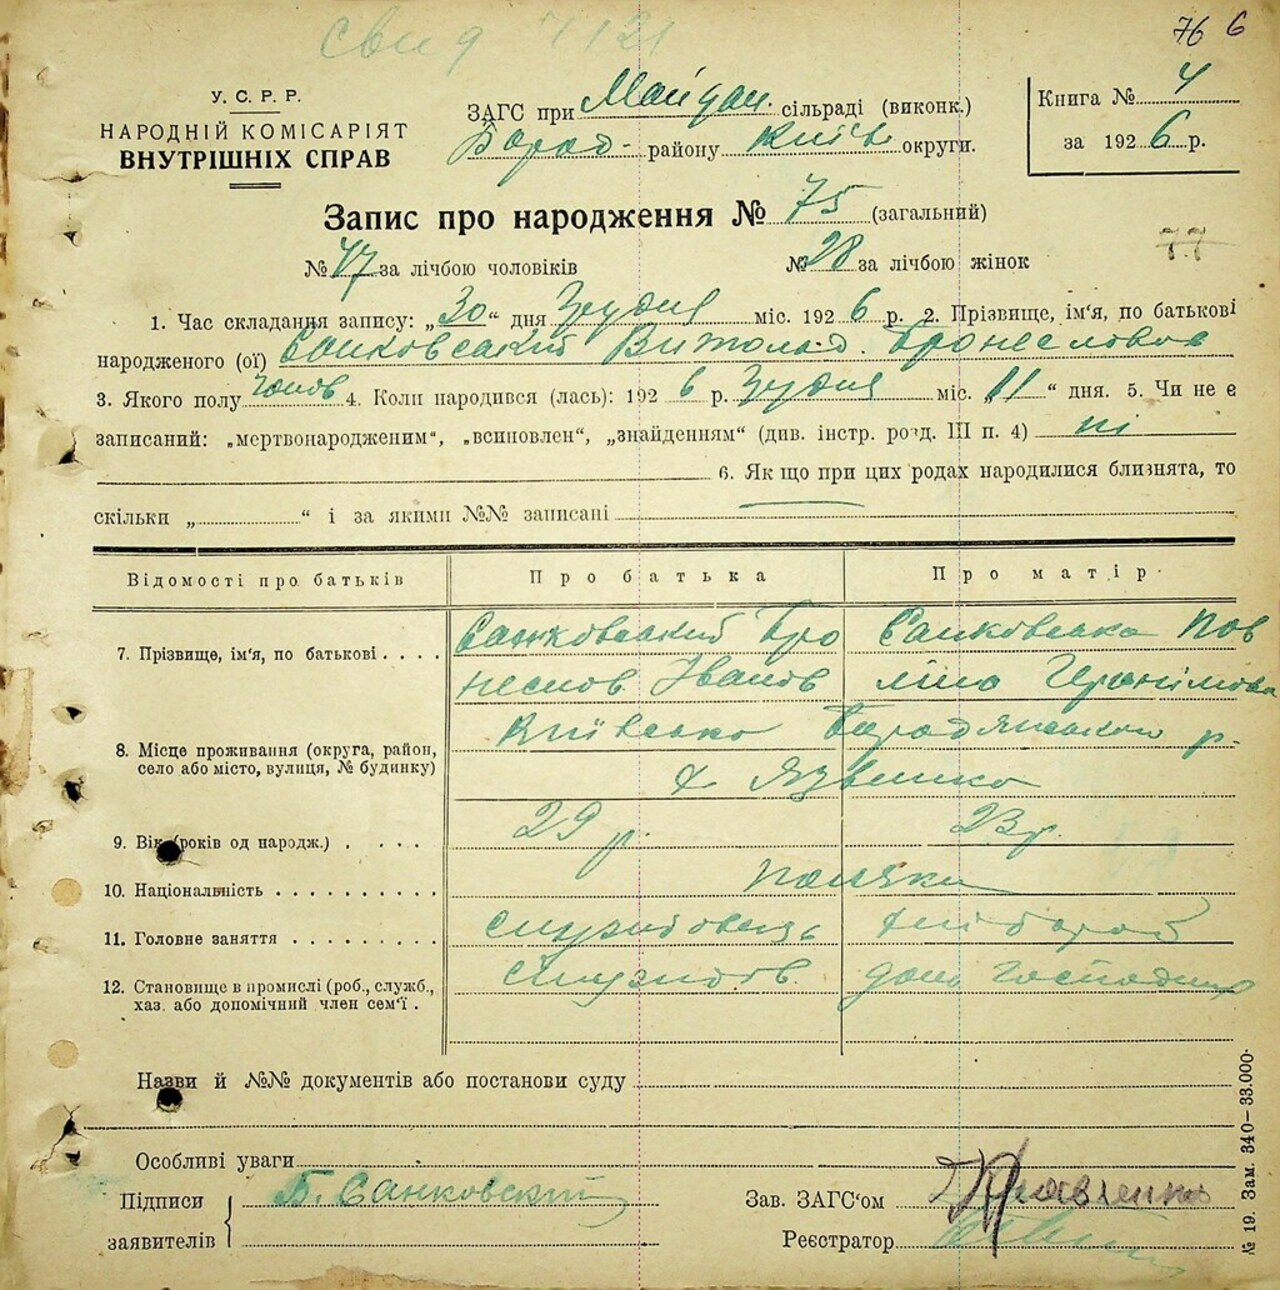 76 6
У. С. Р. Р.
НАРОДНІЙ КОМІСАРІЯТ
ВНУТРІШНІХ СПРАВ
ЗАГС при Майдан. сільраді (виконк.)
Бород- району Київ округи.
Книга № 4
за 1926 р.
Запис про народження № 75 (загальний)
77
№ 47 за лічбою чоловіків № 28 за лічбою жінок
1. Час складання запису: „30“ дня Грудня міс. 1926 р. 2. Прізвище, ім'я, по батькові
народженого (ої) Санковський Витольд. Бронеславов
3. Якого полу чолов 4. Коли народився (лась): 1926 р. Грудня міс. „11“ дня. 5. Чи не є
записаний: „мертвонародженим“, „всиновлен“, „знайденням“ (див. інстр. розд. III п. 4) ні
6. Як що при цих родах народилися близнята, то
скільки „ “ і за якими №№ записані
Відомості про батьків Про батька Про матір
7. Прізвище, ім'я, по батькові . . . . Санковський Бро Санковська Пов
неслов Іванов ліна Геронімова
8. Місце проживання (округа, район, Київсько Бородянського р.
село або місто, вулиця, № будинку) х. Язвинка
9. Вік (років од народж.) . . . . 29 р. 23 р.
10. Національність . . . . . . . . . . поляки
11. Головне заняття . . . . . . . . . службовець
12. Становище в промислі (роб., служб., Службов. дом господин
хаз. або допомічний член сем'ї .
Назви й №№ документів або постанови суду
Особливі уваги
Підписи Б. Санковский
заявителів
Зав. ЗАГС'ом Кравченко
Реєстратор
№ 19. Зам. 340—33.000.